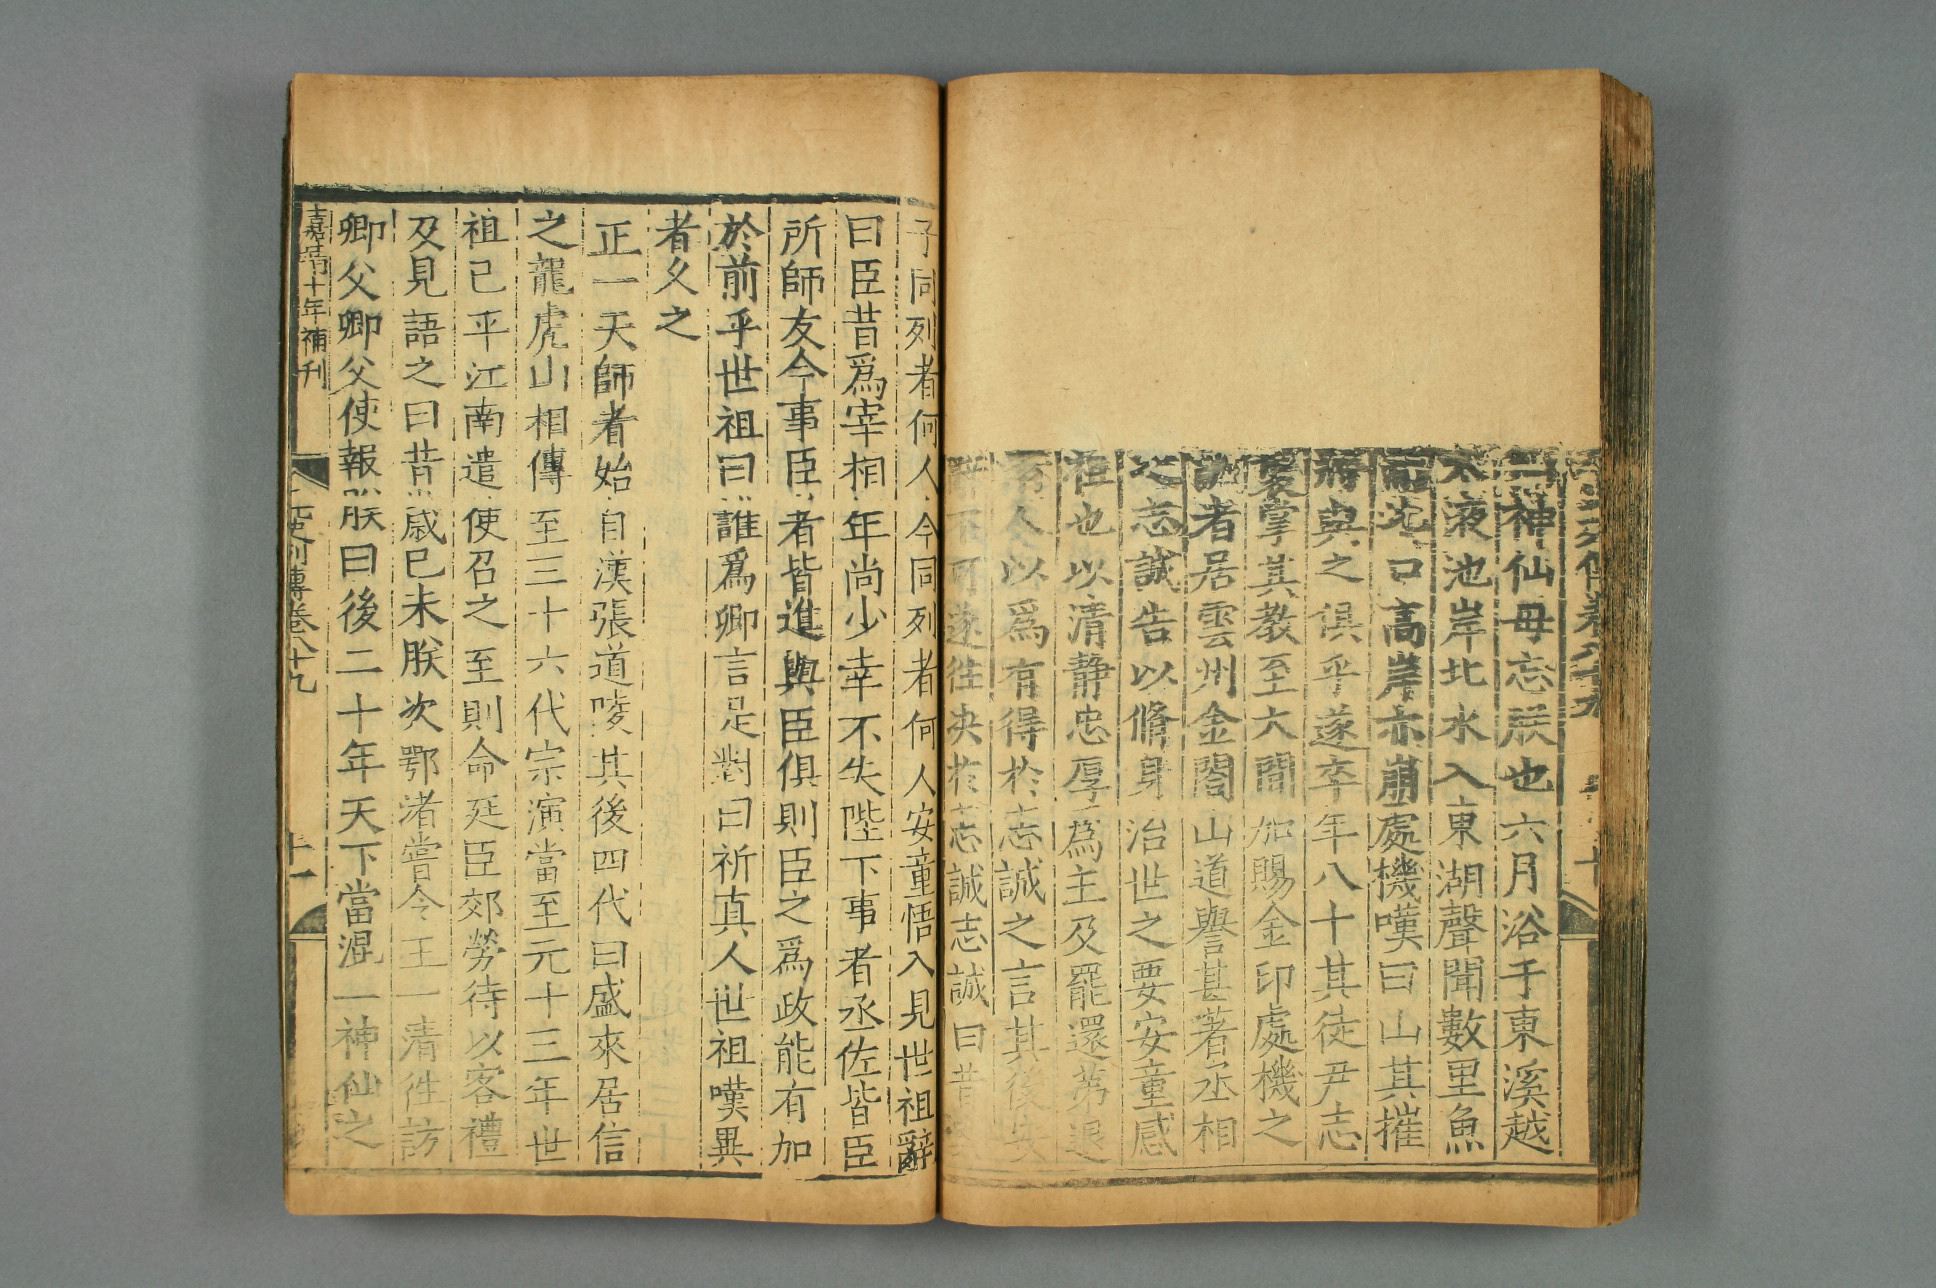 列傳卷八十九 十
神仙毋忘朕也六月浴于東溪越
太液池岸北水入東湖聲聞數里魚
而北口高岸亦崩處機嘆曰山其摧
將與之俱乎遂卒年八十其徒尹志
襲掌其教至大間加賜金印處機之
誠者居雲州金閣山道譽甚著丞相
之志誠告以脩身治世之要安童感
相也以清静忠厚爲主及罷還第退
人以爲有得於志誠之言其後安
辭不可遂往决於志誠志誠曰昔
子同列者何人今同列者何人安童悟入見世祖辭
曰臣昔爲宰相年尚少幸不失陛下事者丞佐皆臣
所師友今事臣者皆進與臣俱則臣之爲政能有加
於前乎世祖曰誰爲卿言是對曰祈真人世祖嘆異
者久之
正一天師者始自漢張道陵其後四代曰盛來居信
之龍虎山相傳至三十六代宗演當至元十三年世
祖已平江南遣使召之至則命廷臣郊勞待以客禮
及見語之曰昔歲已未朕次鄂渚嘗令王一清徃訪
卿父卿父使報朕曰後二十年天下當混一神仙之
嘉靖十年補刊
元史列傳卷八十九
十一